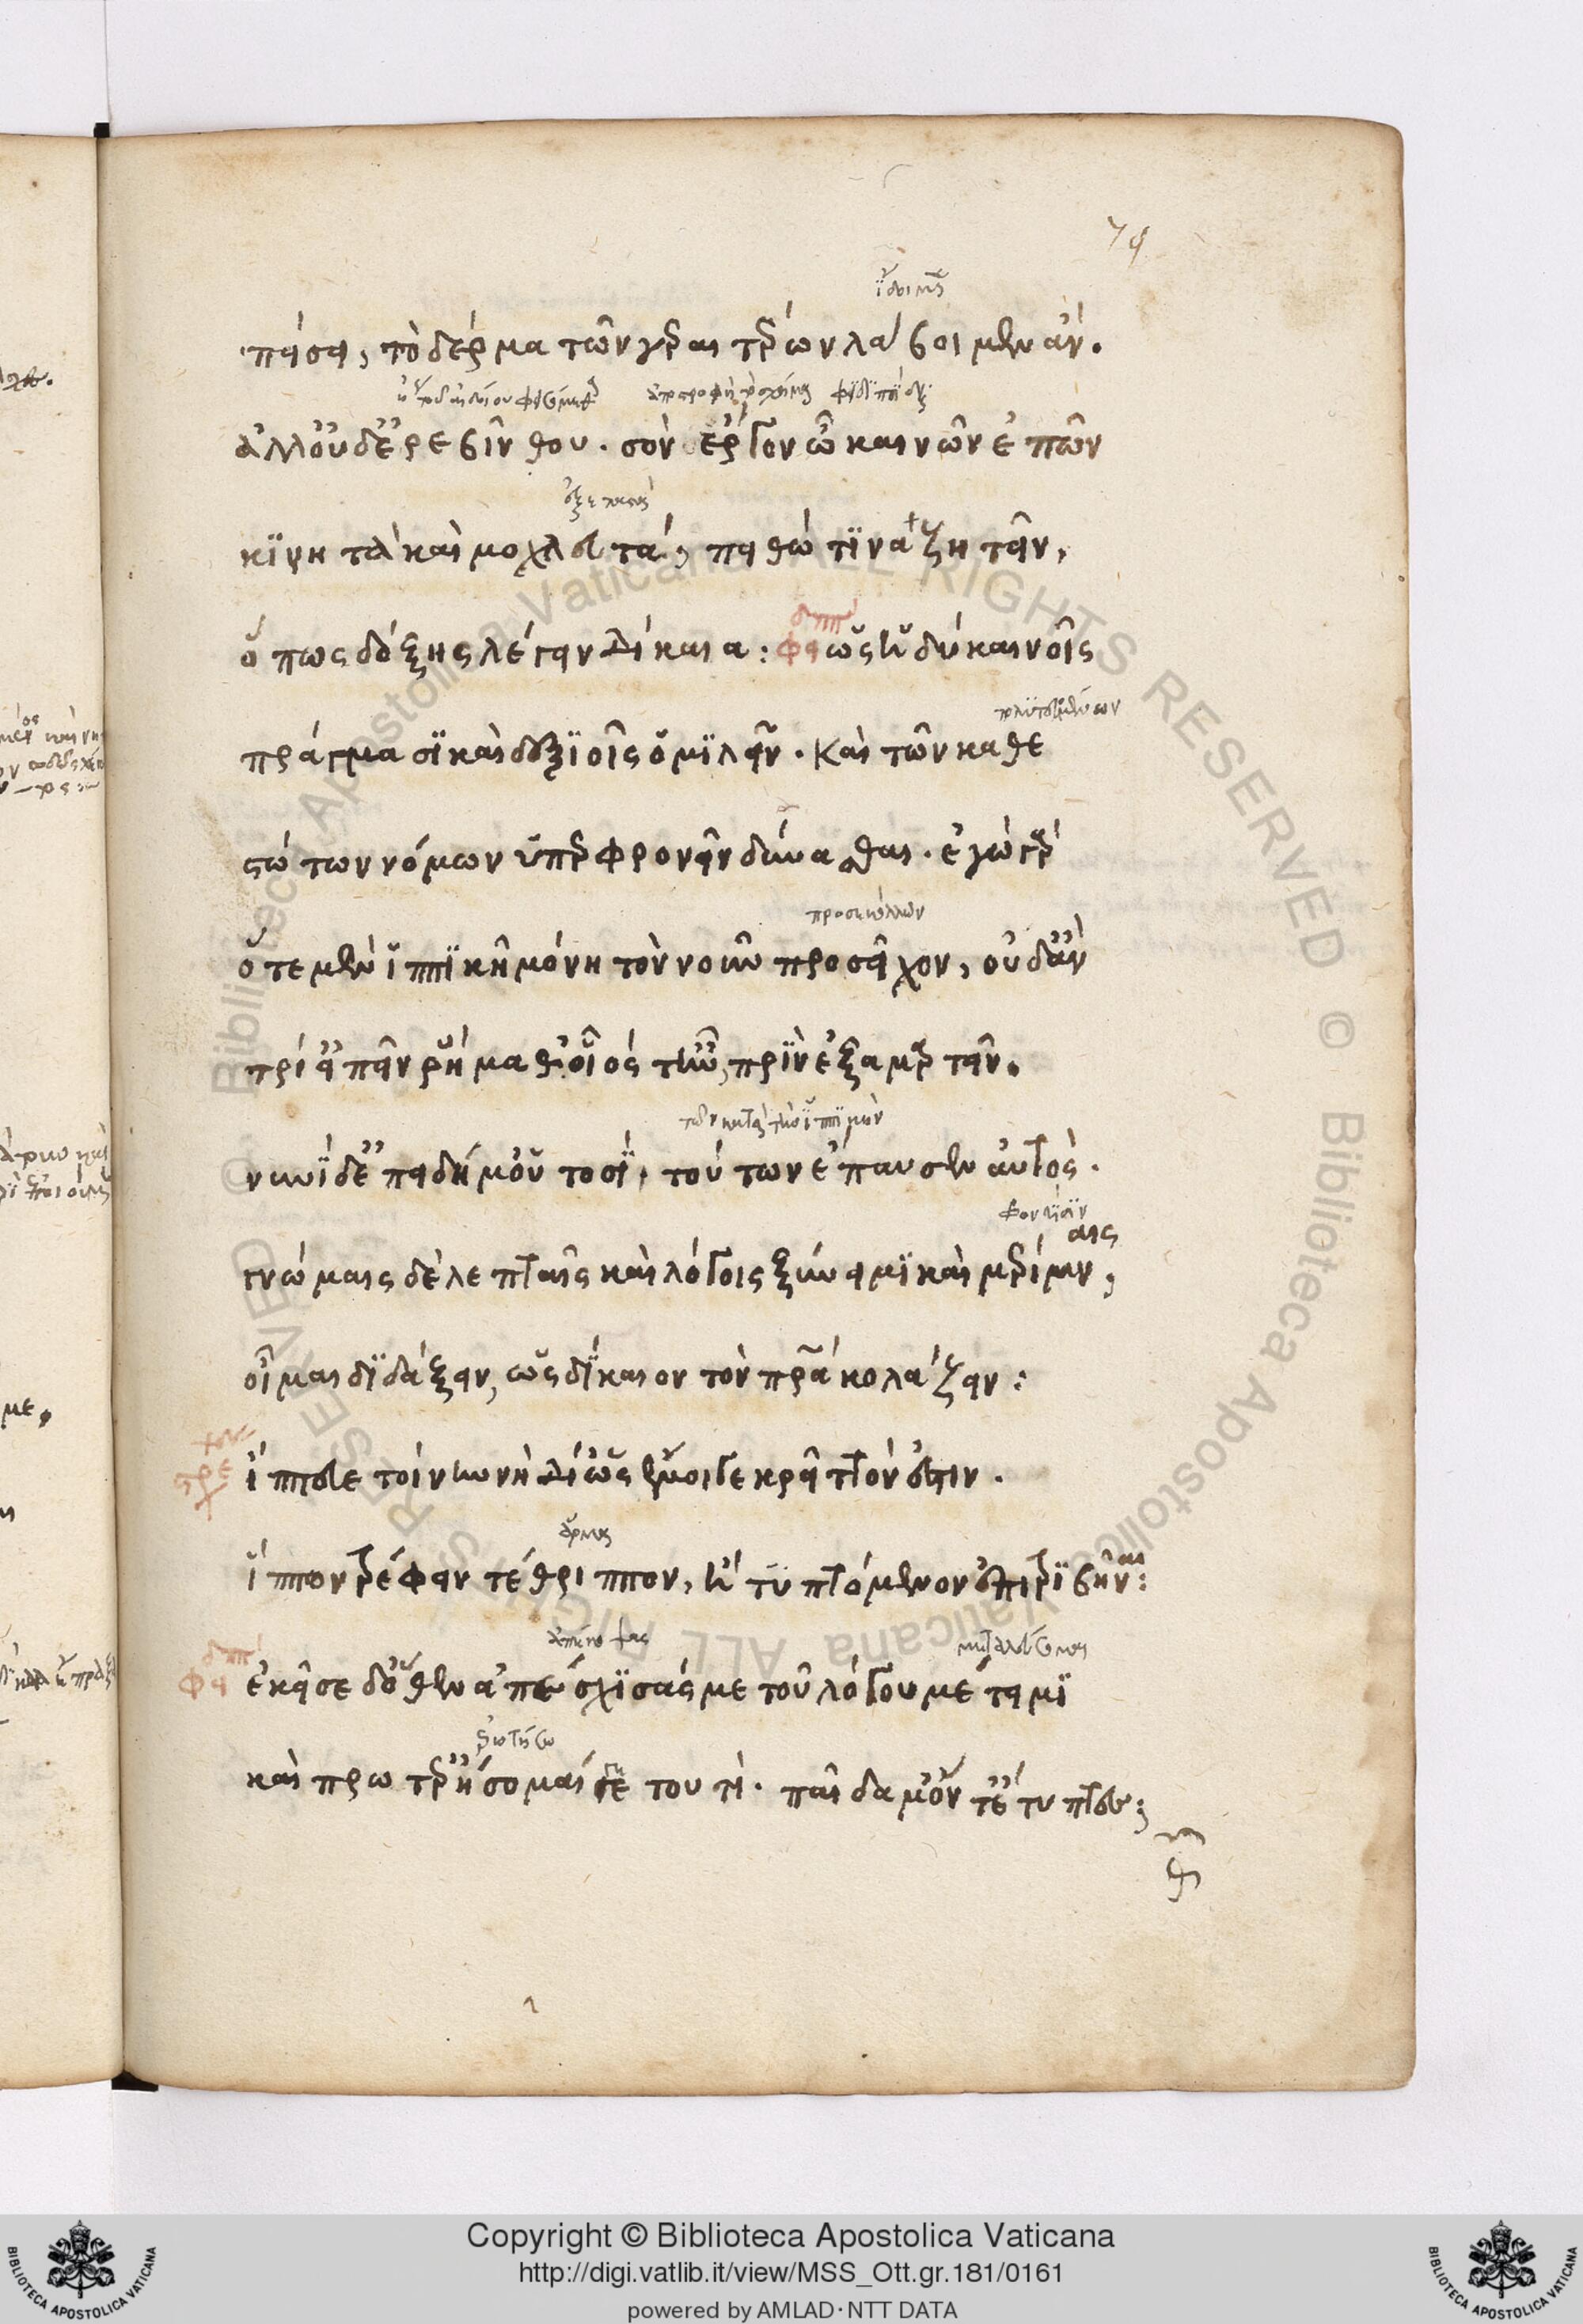 πείσει, τὸ δέρμα τῶν γεραιτέρων λάβοιμεν ἄν.
ἀλλ' οὐδ' ἐρεβίνθου. σὸν ἔργον ὦ καινῶν ἐπῶν
κινητὰ καὶ μοχλευτά, πειθώ τινα ζητεῖν,
ὅπως δόξης λέγειν δίκαια: φει ὡς ἡδὺ καινοῖς
πράγμασι καὶ δεξιοῖς ὁμιλεῖν. καὶ τῶν καθε
στώτων νόμων ὑπερφρονεῖν δύνασθαι. ἐγὼ γὰρ
προσκωλλων
ὅτε μὲν ἱππικῇ μόνη τὸν νοῦν προσεῖχον, οὐδ' ἂν
τρί' εἰπεῖν ῥήμαθ' οἷός τ' ἦν, πρὶν ἐξαμαρτεῖν.
νυνὶ δ' ἐπειδή μ' οὑτοσὶ, τούτων ἔπαυσεν αὐτός.
αις
γνώμαις δὲ λεπταῖς καὶ λόγοις ξύνειμι καὶ μερίμν,
οἶμαι διδάξειν, ὡς δίκαιον τὸν πατέρα κολάζειν:
στρε ἵππευε τοίνυν νὴ Δί' ὡς ἔμοιγε κρεῖττόν ἐστιν.
ἵππων τρέφειν τέθριππον, ἢ τυπτόμενον ἐπιτριβῆναι:
φει ἐκεῖσε δ' ὅθεν ἀπέσχισάς με τοῦ λόγου μέτειμι
ἐρωτήσω
καὶ πρῶτ' ἐρήσομαί σε τουτί. παῖδά μ' ὄντ' ἔτυπτες;
Copyright © Biblioteca Apostolica Vaticana
http://digi.vatlib.it/view/MSS_Ott.gr.181/0161
powered by AMLAD·NTT DATA